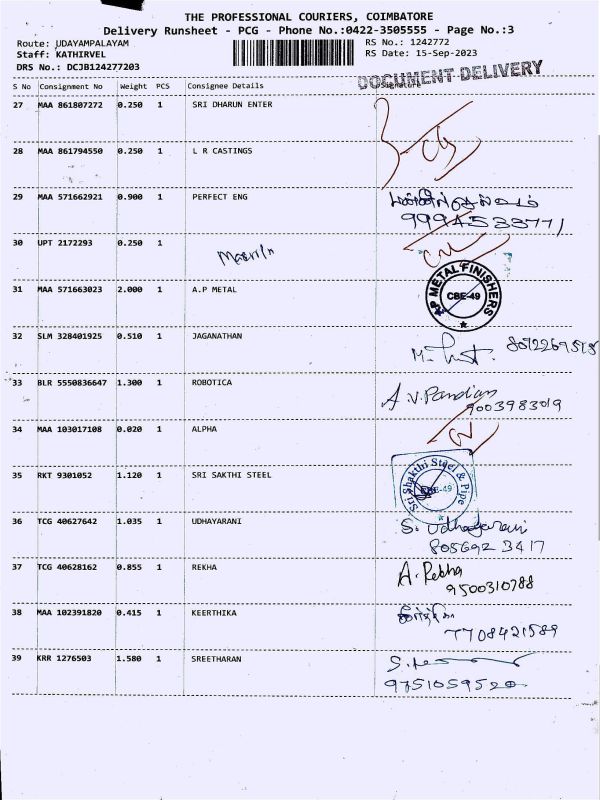 THE PROFESSIONAL COURIERS, COIMBATORE
Delivery Runsheet - PCG - Phone No.:0422-3505555 - Page No.:3
Route: UDAYAMPALAYAM RS No.: 1242772
Staff: KATHIRVEL RS Date: 15-Sep-2023
DRS No.: DCJB124277203
DOCUMENT DELIVERY
S No Consignment No Weight PCS Consignee Details Signature
27 MAA 861807272 0.250 1 SRI DHARUN ENTER
28 MAA 861794550 0.250 1 L R CASTINGS
29 MAA 571662921 0.900 1 PERFECT ENG
30 UPT 2172293 0.250 1
31 MAA 571663023 2.000 1 A.P METAL
AP METAL FINISHERS
CBE-49
32 SLM 328401925 0.510 1 JAGANATHAN
33 BLR 5550836647 1.300 1 ROBOTICA A.V.Pandian
9003983019
34 MAA 103017108 0.020 1 ALPHA
35 RKT 9301052 1.120 1 SRI SAKTHI STEEL
Sri Shakthi Steel & Pipe
36 TCG 40627642 1.035 1 UDHAYARANI S. Udhayarani
805692 3417
37 TCG 40628162 0.855 1 REKHA A. Rekha
9500310788
38 MAA 102391820 0.415 1 KEERTHIKA
7708421589
39 KRR 1276503 1.580 1 SREETHARAN
9751059520